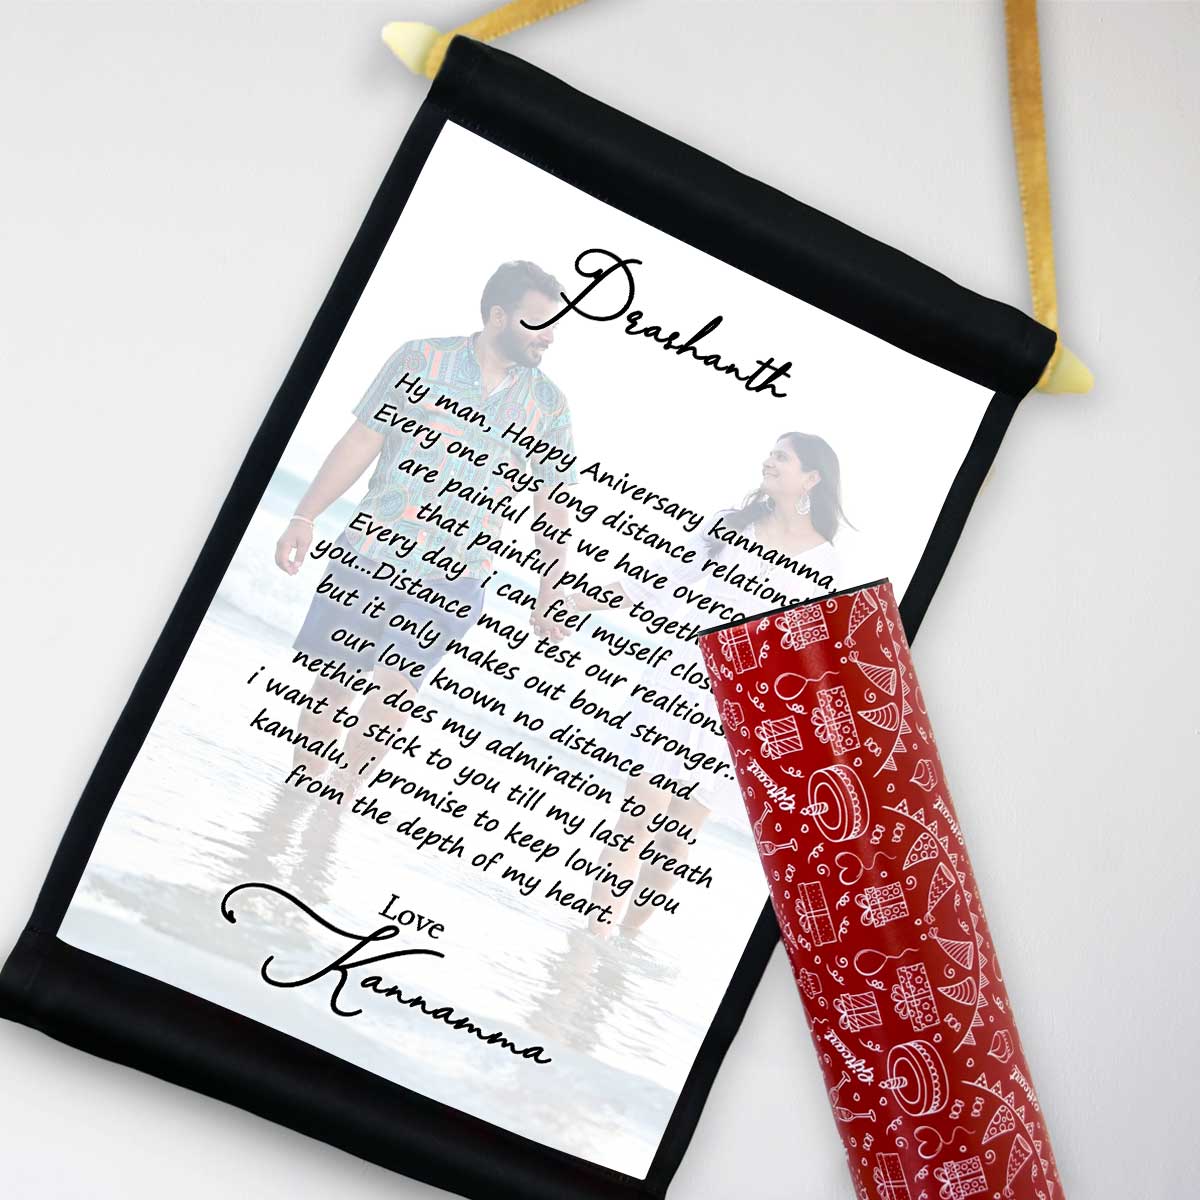 Prashanth
Hy man, Happy Aniversary kannamma,
Every one says long distance
are painful but we have
that painful phase
Every day i can feel myself
you...Distance may test our
but it only makes out bond stronger..
our love known no distance and
nethier does my admiration to you,
i want to stick to you till my last breath
kannalu, i promise to keep loving you
from the depth of my heart.
Love
Kannamma
Giftcart
Giftcart
Giftcart
Giftcart